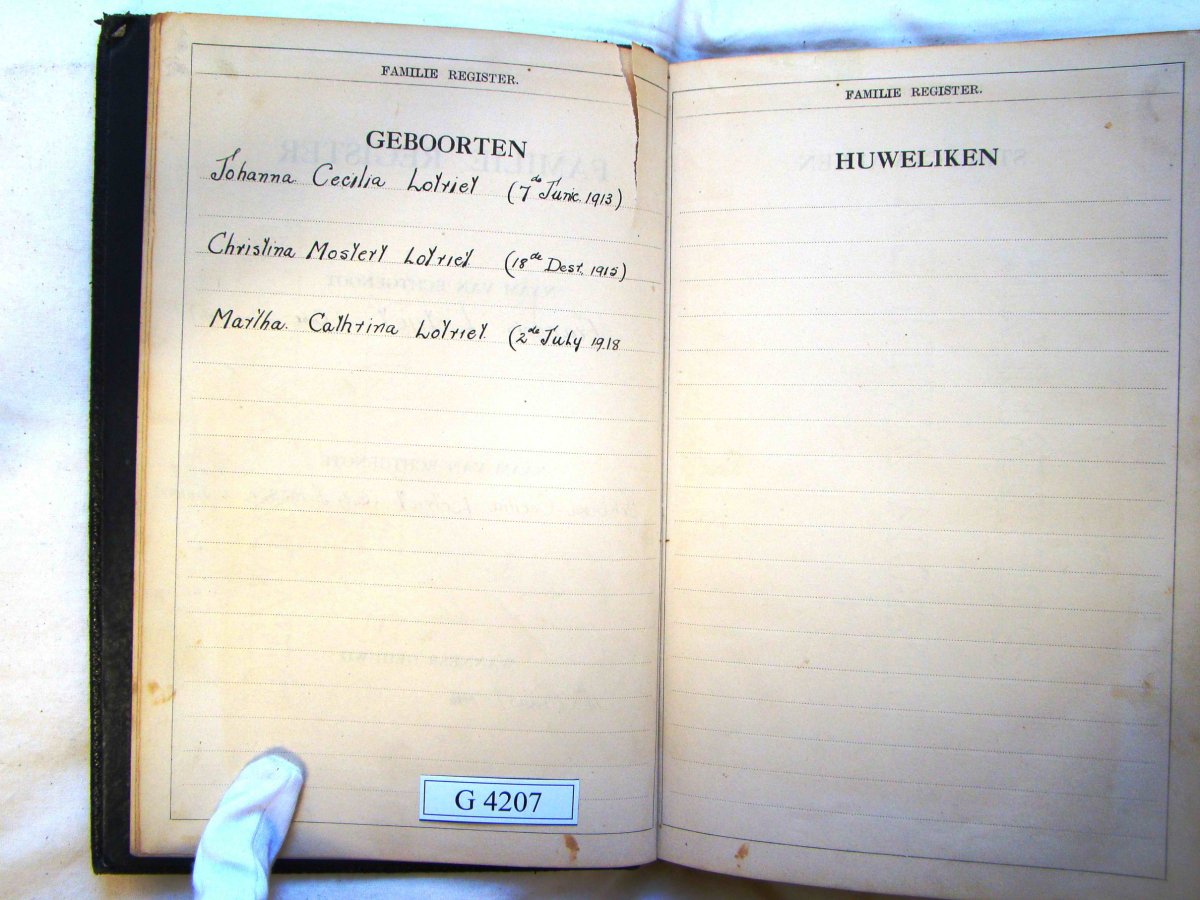 FAMILIE REGISTER.
GEBOORTEN
Johanna Cecilia Lotriet (7de Junie. 1913)
Christina Mostert Lotriet (18de Desr. 1915)
Martha. Cathrina Lotriet. (2de July 1918
G 4207
FAMILIE REGISTER.
HUWELIKEN